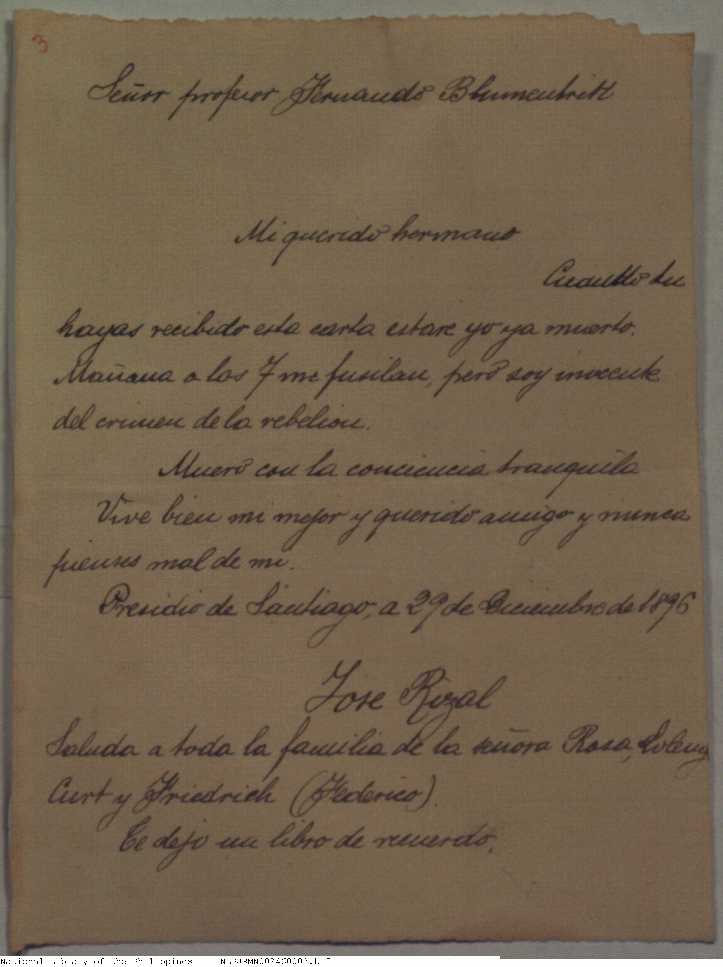 3
Señor profesor Fernando Blumentritt
Mi querido hermano
Cuando tu
hayas recibido esta carta estare yo ya muerto.
Mañana a las 7 me fusilan, pero soy inocente
del crimen de la rebelion.
Muero con la conciencia tranquila
Vive bien mi mejor y querido amigo y nunca
pienses mal de mi.
Presidio de Santiago, a 29 de Diciembre de 1896
Jose Rizal
Saluda a toda la familia de la señora Rosa, Loleng
Curt y Friedrich (Federico).
Te dejo un libro de recuerdo.
National Library of the Philippines